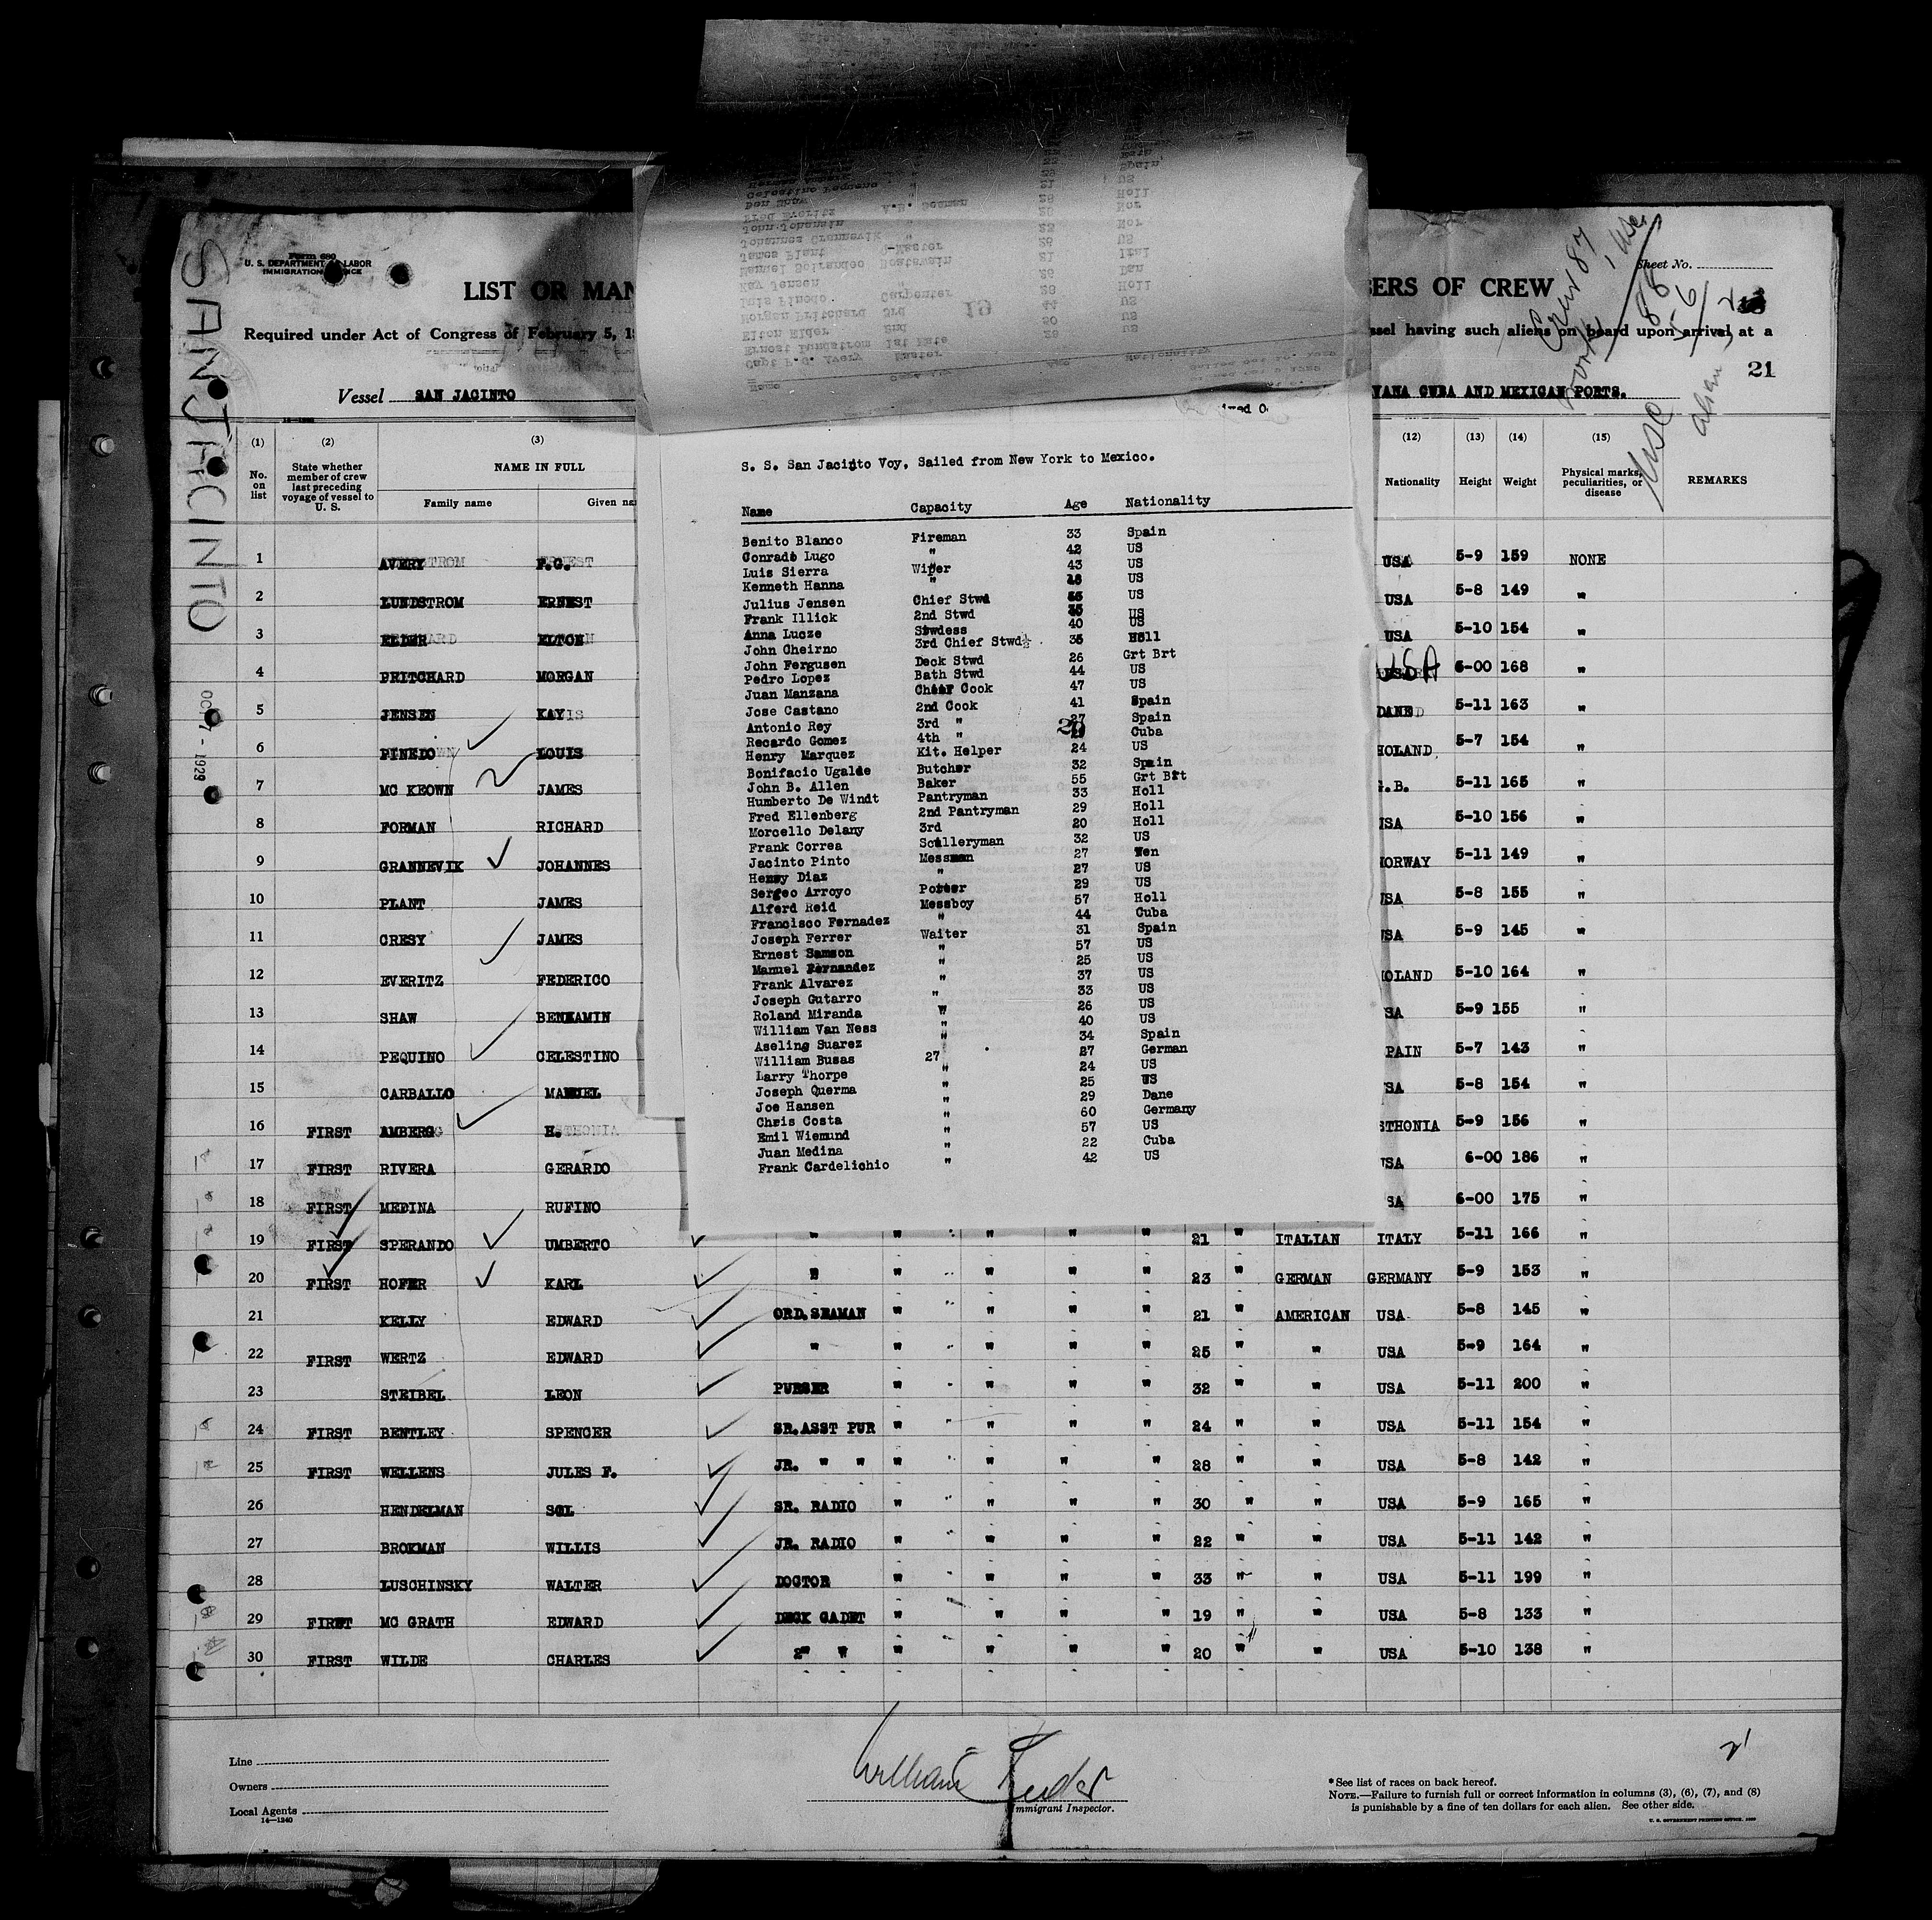 SAN JACINTO
OCT 7 - 1929
Form 680
U. S. DEPARTMENT OF LABOR
IMMIGRATION SERVICE
LIST OR MAN
BERS OF CREW
Sheet No.
Required under Act of Congress of February 5, 1
ssel having such aliens on board upon arrival at a
21
Vessel SAN JACINTO
VANA CUBA AND MEXICAN PORTS.
(1) No. on list
(2) State whether member of crew last preceding voyage of vessel to U. S.
(3) NAME IN FULL
Family name Given na
(12) Nationality
(13) Height
(14) Weight
(15) Physical marks, peculiarities, or disease
REMARKS
1 AVERY F.G. USA 5-9 159 NONE
2 LUNDSTROM ERNEST USA 5-8 149 "
3 ELDER ELTON USA 5-10 154 "
4 PRITCHARD MORGAN USA 6-00 168 "
5 JENSEN KAY DANE 5-11 163 "
6 PINEDO LOUIS HOLAND 5-7 154 "
7 MC KEOWN JAMES G.B. 5-11 165 "
8 FORMAN RICHARD USA 5-10 156 "
9 GRANNEVIK JOHANNES NORWAY 5-11 149 "
10 PLANT JAMES USA 5-8 155 "
11 CRESY JAMES USA 5-9 145 "
12 EVERITZ FEDERICO OLAND 5-10 164 "
13 SHAW BENKAMIN SA 5-9 155 "
14 PEQUINO CELESTINO PAIN 5-7 143 "
15 CARBALLO MANUEL SA 5-8 154 "
16 FIRST AMBERG H. STHONIA 5-9 156 "
17 FIRST RIVERA GERARDO USA 6-00 186 "
18 FIRST MEDINA RUFINO SA 6-00 175 "
19 FIRST SPERANDO UMBERTO " " " " " " 21 " ITALIAN ITALY 5-11 166 "
20 FIRST HOFER KARL " " " " " " 23 " GERMAN GERMANY 5-9 153 "
21 KELLY EDWARD ORD.SEAMAN " " " " " 21 " AMERICAN USA 5-8 145 "
22 FIRST WERTZ EDWARD " " " " " " 25 " " USA 5-9 164 "
23 STEIBEL LEON PURSER " " " " " 32 " " USA 5-11 200 "
24 FIRST BENTLEY SPENCER SR.ASST PUR " " " " " 24 " " USA 5-11 154 "
25 FIRST WELLENS JULES F. JR. " " " " " " " 28 " " USA 5-8 142 "
26 HENDELMAN SOL SR. RADIO " " " " " 30 " " USA 5-9 165 "
27 BROKMAN WILLIS JR. RADIO " " " " " 22 " " USA 5-11 142 "
28 LUSCHINSKY WALTER DOCTOR " " " " " 33 " " USA 5-11 199 "
29 FIRST MC GRATH EDWARD DECK CADET " " " " " 19 " " USA 5-8 133 "
30 FIRST WILDE CHARLES 2" " " " " " " 20 " " USA 5-10 138 "
S. S. San Jacinto Voy, Sailed from New York to Mexico.
Name Capacity Age Nationality
Benito Blanco Fireman 33 Spain
Conrado Lugo " 42 US
Luis Sierra Wiper 43 US
Kenneth Hanna " 18 US
Julius Jensen Chief Stwd US
Frank Illick 2nd Stwd 35 US
Anna Lucze Stwdess 40 US
John Cheirno 3rd Chief Stwd 35 Holl
John Fergusen Deck Stwd 26 Grt Brt
Pedro Lopez Bath Stwd 44 US
Juan Manzana Chief Cook 47 US
Jose Castano 2nd Cook 41 Spain
Antonio Rey 3rd " 27 Spain
Recardo Gomez 4th " Cuba
Henry Marquez Kit. Helper 24 US
Bonifacio Ugalde Butcher 32 Spain
John B. Allen Baker 55 Grt Brt
Humberto De Windt Pantryman 33 Holl
Fred Ellenberg 2nd Pantryman 29 Holl
Morcello Delany 3rd 20 Holl
Frank Correa Sculleryman 32 US
Jacinto Pinto Messman 27 Ven
Henry Diaz " 27 US
Sergeo Arroyo Porter 29 US
Alferd Reid Messboy 57 Holl
Francisco Fernadez " 44 Cuba
Joseph Ferrer Waiter 31 Spain
Ernest Samson " 57 US
Manuel Fernandez " 25 US
Frank Alvarez " 37 US
Joseph Gutarro " 33 US
Roland Miranda " 26 US
William Van Ness " 40 US
Aseling Suarez " 34 Spain
William Busas 27 27 German
Larry Thorpe " 24 US
Joseph Querma " 25 US
Joe Hansen " 29 Dane
Chris Costa " 60 Germany
Emil Wiemund " 57 US
Juan Medina " 22 Cuba
Frank Cardelichio " 42 US
Line
Owners
Local Agents
14—1240
Immigrant Inspector.
*See list of races on back hereof.
NOTE.—Failure to furnish full or correct information in columns (3), (6), (7), and (8)
is punishable by a fine of ten dollars for each alien. See other side.